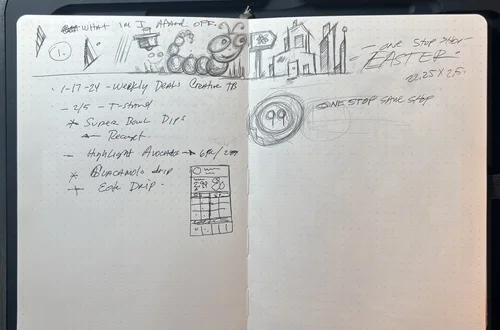 WHAT IM I AFRAID OFF.
1.
· 1-17-24 - WEEKLY DEALS CREATIVE TB
- 2/5 - T-STAND
* SUPER BOWL DIPS
RECEIPT
- HIGHLIGHT AVOCADO → 6PK/2
* GUACAMOLE DRIP
+ DRIP -
- ONE STOP SHOP
- EASTER -
22.25 X 25
99
ONE STOP SAVE SHOP